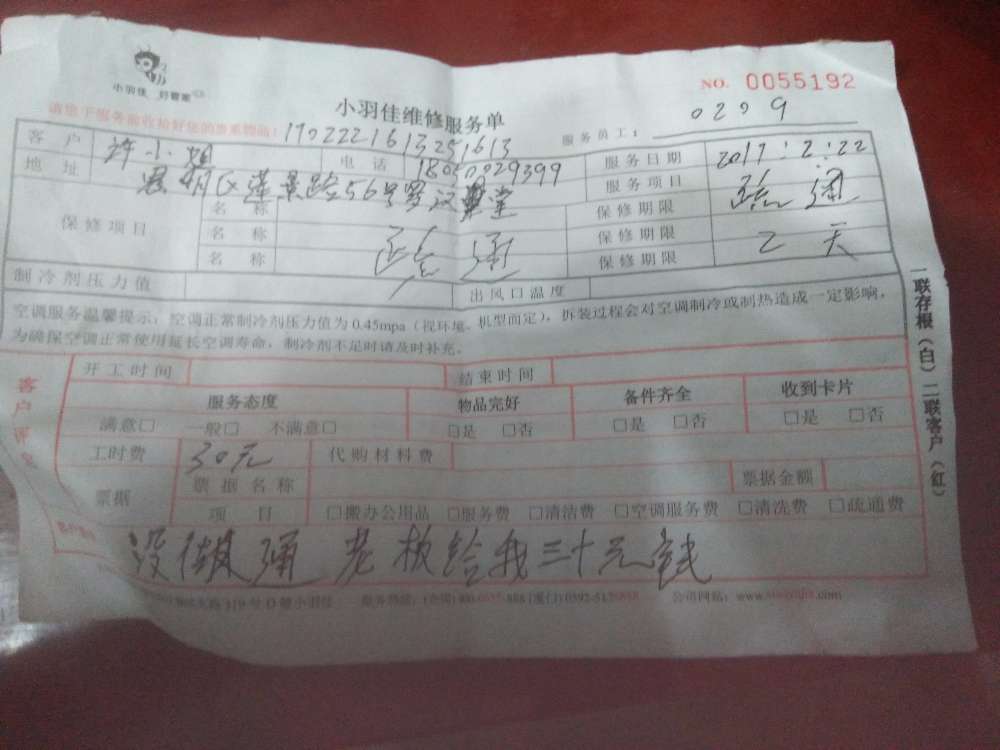 小羽佳 好管家
NO. 0055192
小羽佳维修服务单
请您下服务前收拾好您的贵重物品! 1702221613251613
服务员工: 0209
客户 许小姐 电话 18050029399 服务日期 2017:2:22
地址 思明区莲景路56号罗汉堂 服务项目 疏通
保修项目 名称 保修期限
名称 疏通 保修期限 2天
名称 保修期限
制冷剂压力值 出风口温度
空调服务温馨提示:空调正常制冷剂压力值为0.45mpa(视环境、机型而定),拆装过程会对空调制冷或制热造成一定影响,
为确保空调正常使用延长空调寿命,制冷剂不足时请及时补充。
开工时间 结束时间
服务态度 物品完好 备件齐全 收到卡片
满意□ 一般□ 不满意□ □是 □否 □是 □否 □是 □否
工时费 30元 代购材料费
票据 票据名称 票据金额
项目 □搬办公用品 □服务费 □清洁费 □空调服务费 □清洗费 □疏通费
没做通 老板给我三十元钱
319号D幢小羽佳 服务热线: 公司网站:www.
一联存根(白)二联客户(红)